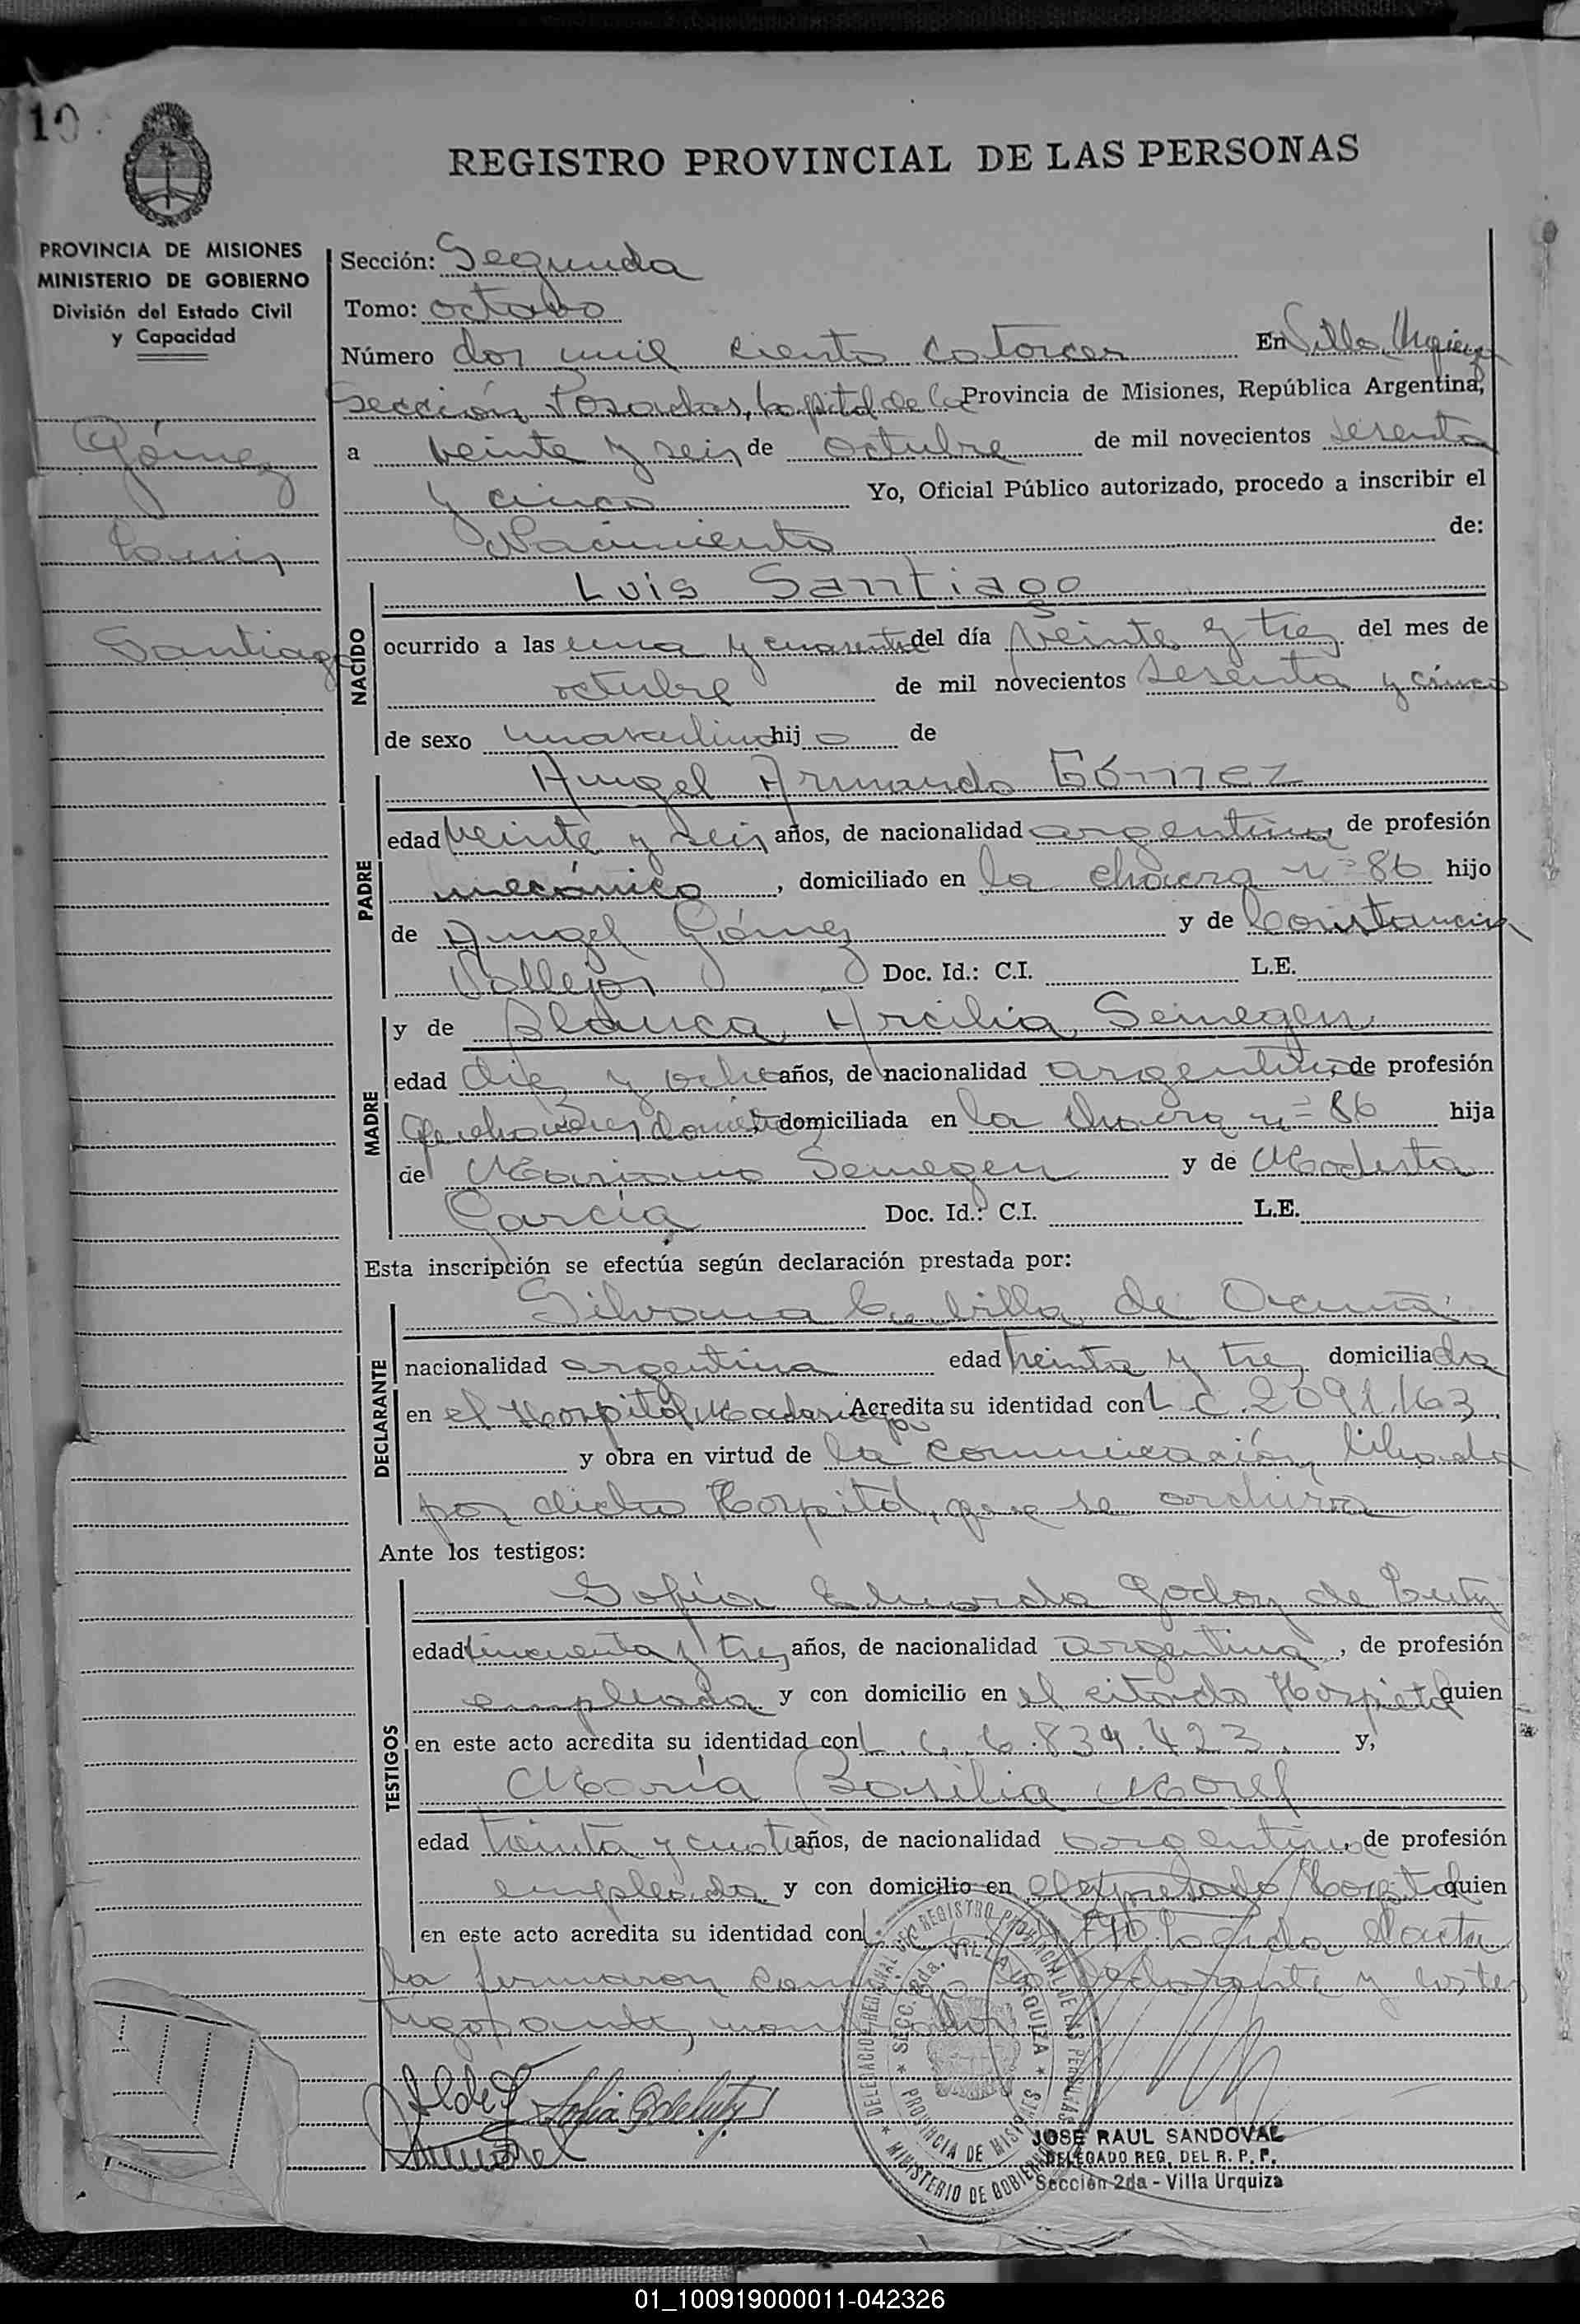 10
REGISTRO PROVINCIAL DE LAS PERSONAS
PROVINCIA DE MISIONES
MINISTERIO DE GOBIERNO
División del Estado Civil
y Capacidad
Gómez
Luis
Santiago
Sección: Segunda
Tomo: octavo
Número dos mil ciento catorce En Villa Urquiza
Sección Posadas, Capital de la Provincia de Misiones, República Argentina,
a veinte y seis de octubre de mil novecientos sesenta
y cinco Yo, Oficial Público autorizado, procedo a inscribir el
Nacimiento de:
NACIDO
Luis Santiago
ocurrido a las una y cuarenta del día veinte y tres del mes de
octubre de mil novecientos sesenta y cinco
de sexo masculino hijo de
PADRE
Angel Armando Gómez
edad veinte y seis años, de nacionalidad argentina de profesión
mecánico, domiciliado en la chacra nº 86 hijo
de Angel Gómez y de Constancia
Vallejos Doc. Id.: C.I. L.E.
MADRE
y de Blanca Arcilia Semegen
edad diez y ocho años, de nacionalidad argentina, de profesión
quehaceres domést. domiciliada en la chacra nº 86 hija
de Mariano Semegen y de Modesta
García Doc. Id.: C.I. L.E.
Esta inscripción se efectúa según declaración prestada por:
DECLARANTE
Silvana Cubilla de Acuña
nacionalidad argentina edad treinta y tres domiciliada
en el Hospital Madariaga Acredita su identidad con L.C. 2091.163
y obra en virtud de la comunicación librada
por dicho Hospital, que se archiva
Ante los testigos:
TESTIGOS
Sofía Eduarda Godoy de Luty
edad cincuenta y tres años, de nacionalidad argentina, de profesión
empleada y con domicilio en el citado Hospital quien
en este acto acredita su identidad con L.C. 6.839.423. y,
María Basilia Morel
edad treinta y cuatro años, de nacionalidad argentina, de profesión
empleada y con domicilio en el expresado Hospital quien
en este acto acredita su identidad con Leída el acta
la firmaron con declarante y los tes
tigos ante
Sofía G de Luty
DELEGACION REGIONAL DEL REGISTRO PROVINCIAL DE LAS PERSONAS
MINISTERIO DE GOBIERNO
SECC. 2da. VILLA URQUIZA
PROVINCIA DE MISIONES
JOSE RAUL SANDOVAL
DELEGADO REG. DEL R. P. P.
Sección 2da - Villa Urquiza
01_100919000011-042326